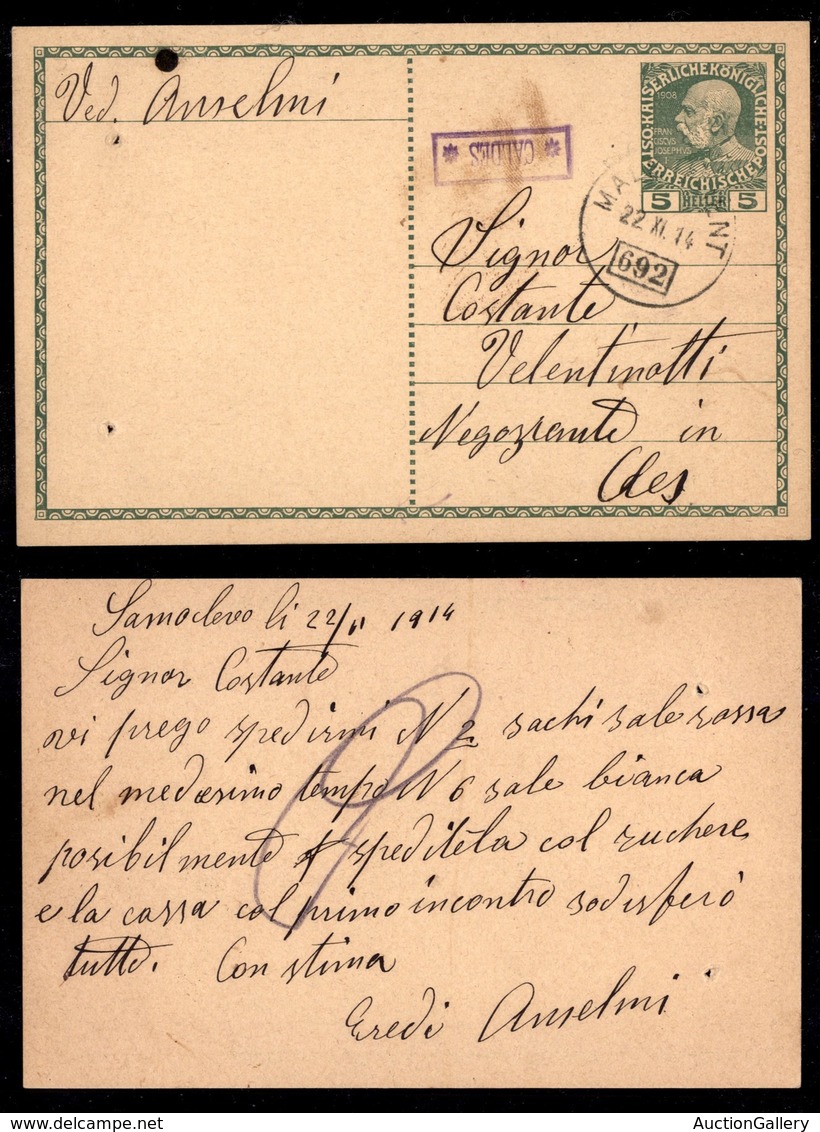 Ved. Anselmi
* CALDES *
KAISERLICHE KÖNIGLICHE
ÖSTERREICHISCHE POST
1908
FRAN
CISCVS
IOSEPHVS
5 HELLER 5
22.XI.14
692
Signor
Costante
Velentinotti
Negozrante in
Cles
Samoclevo li 22/11 1914
Signor Costante
vi prego spedirmi N 2 sachi sale rossa
nel medesimo tempo N 6 sale bianca
posibilmente speditela col zuchere
e la cassa col primo incontro sodisferò
tutto. Con stima
Eredi Anselmi
AuctionGallery